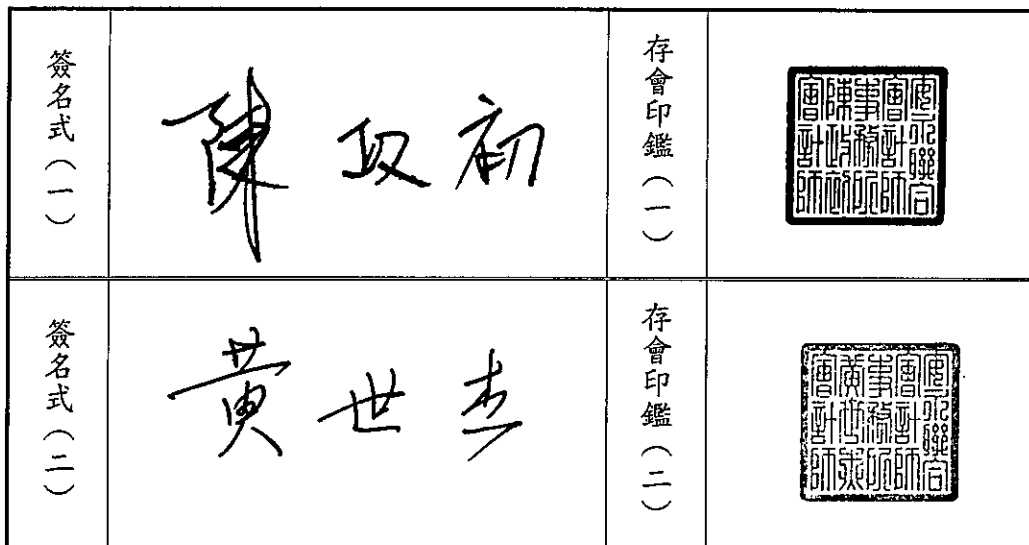 簽名式（一）
陳政初
存會印鑑（一）
安永聯合
會計師
事務所
陳政初
會計師
簽名式（二）
黃世杰
存會印鑑（二）
安永聯合
會計師
事務所
黃世杰
會計師